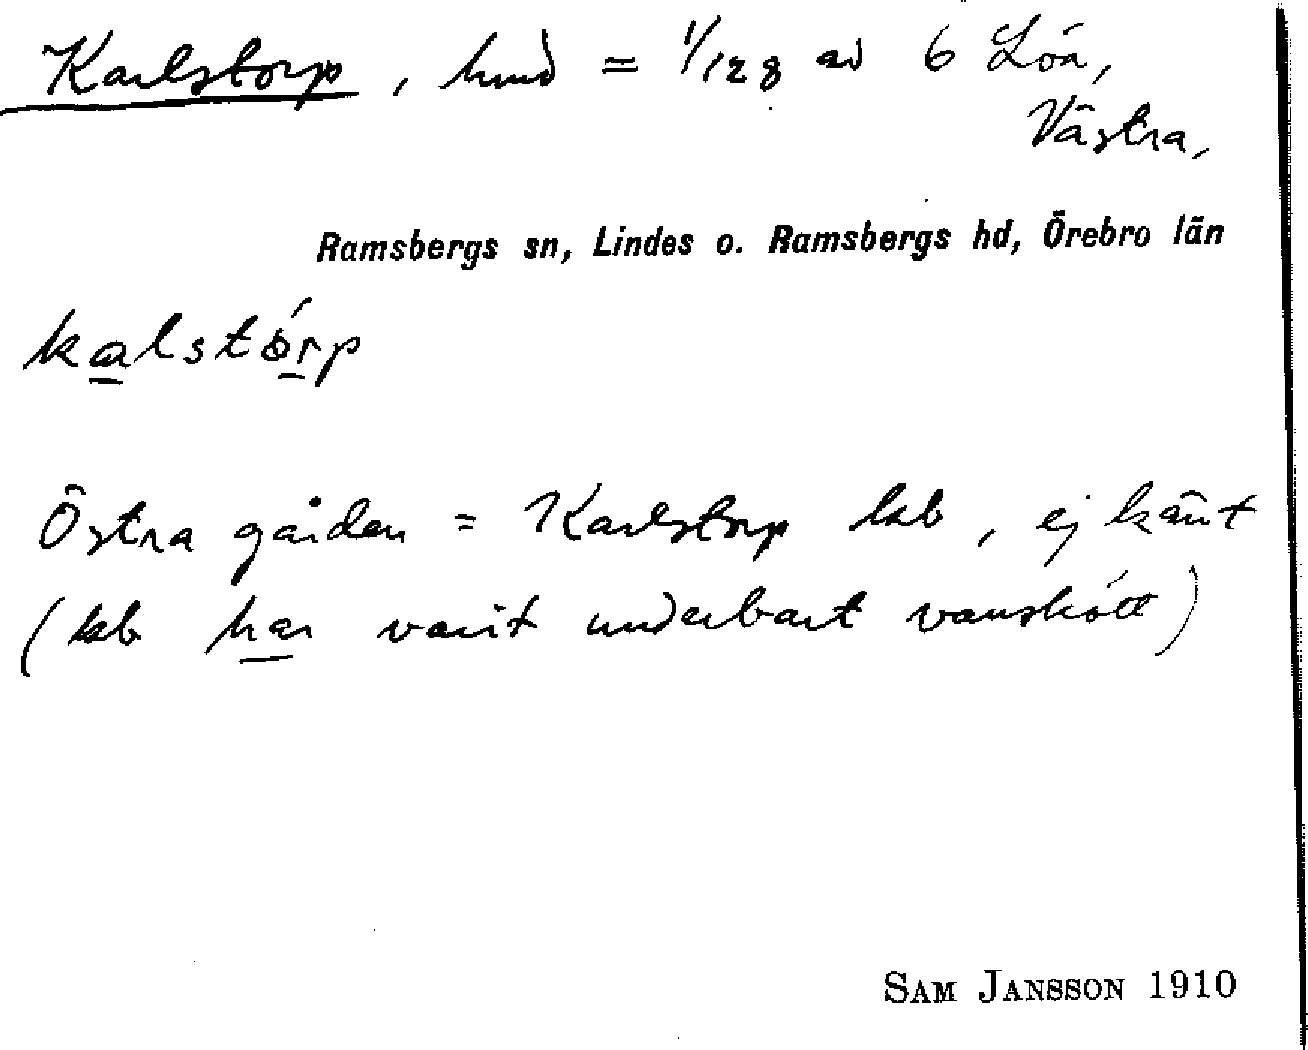 Karlstorp, hmd = 1/128 av 6 Löa,
Västra,
Ramsbergs sn, Lindes o. Ramsbergs hd, Örebro län
kalstórp
Östra gården = Karlstorp lsb, ej känt
(lsb har varit underbart vanskött)
SAM JANSSON 1910